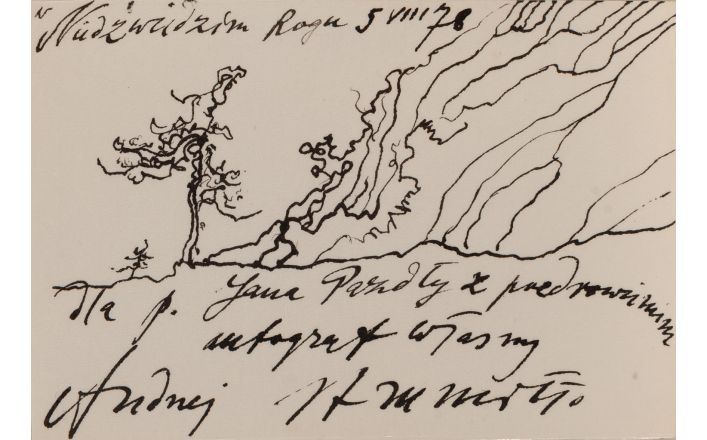 w Niedźwiedzim Rogu 5 VIII 78
dla p. Jana Pazdły z pozdrowieniem
autograf własny
Andrzej Strumiłło